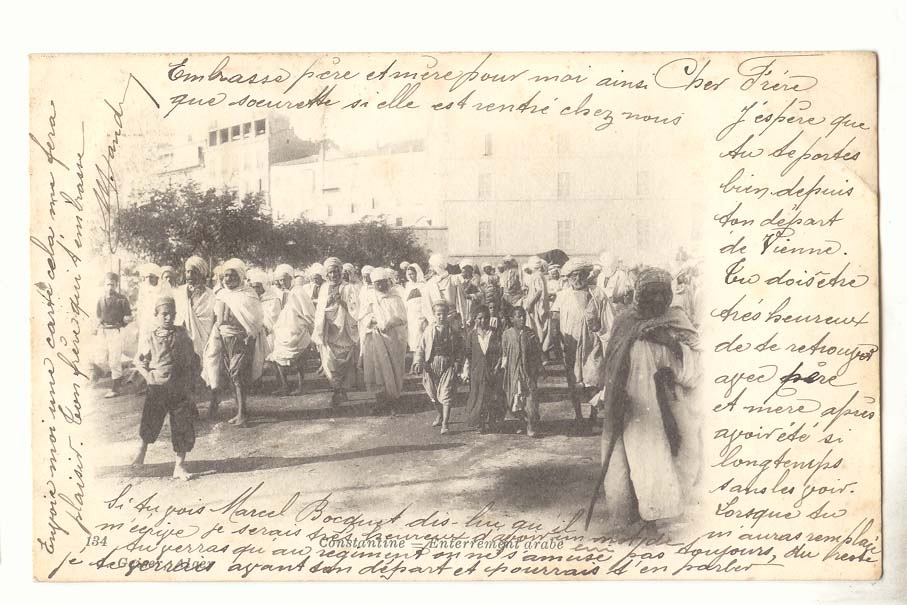 Cher Frère
J'éspère que
tu te portes
bien depuis
ton départ
de Vienne.
Tu dois être
trés heureux
de te retrouver
avec père
et mère aprés
avoir été si
longtemps
sans les voir.
Lorsque tu
m'auras remplaçé
Si tu vois Marcel Bocquet dis-lui qu'il
m'écrive je serais très heureux d'avoir un mot de
tu verras qu'au régiment on ne s'amuse pas toujours, du reste
je te verrais avant ton départ et pourrais t'en parler
Envoie moi une carte cela me fera
plaisir. Ton frère qui t'embrasse
Embrasse père et mère pour moi ainsi
que sœurette si elle est rentré chez nous
134 Constantine — Enterrement arabe
Geiser, Alger